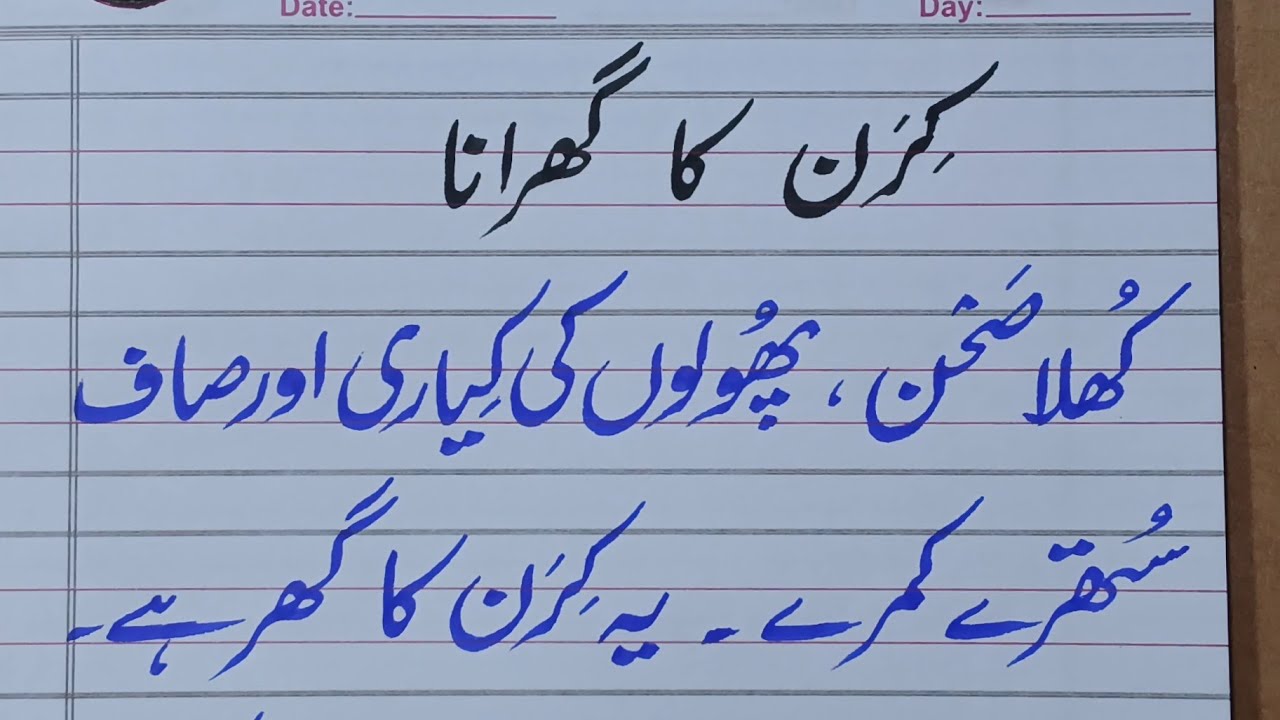 Date: Day:
کِرَن کا گھرانا
کُھلا صَحْن ، پُھولوں کی کِیاری اور صاف
سُتھرے کمرے ۔ یہ کِرَن کا گھر ہے ۔